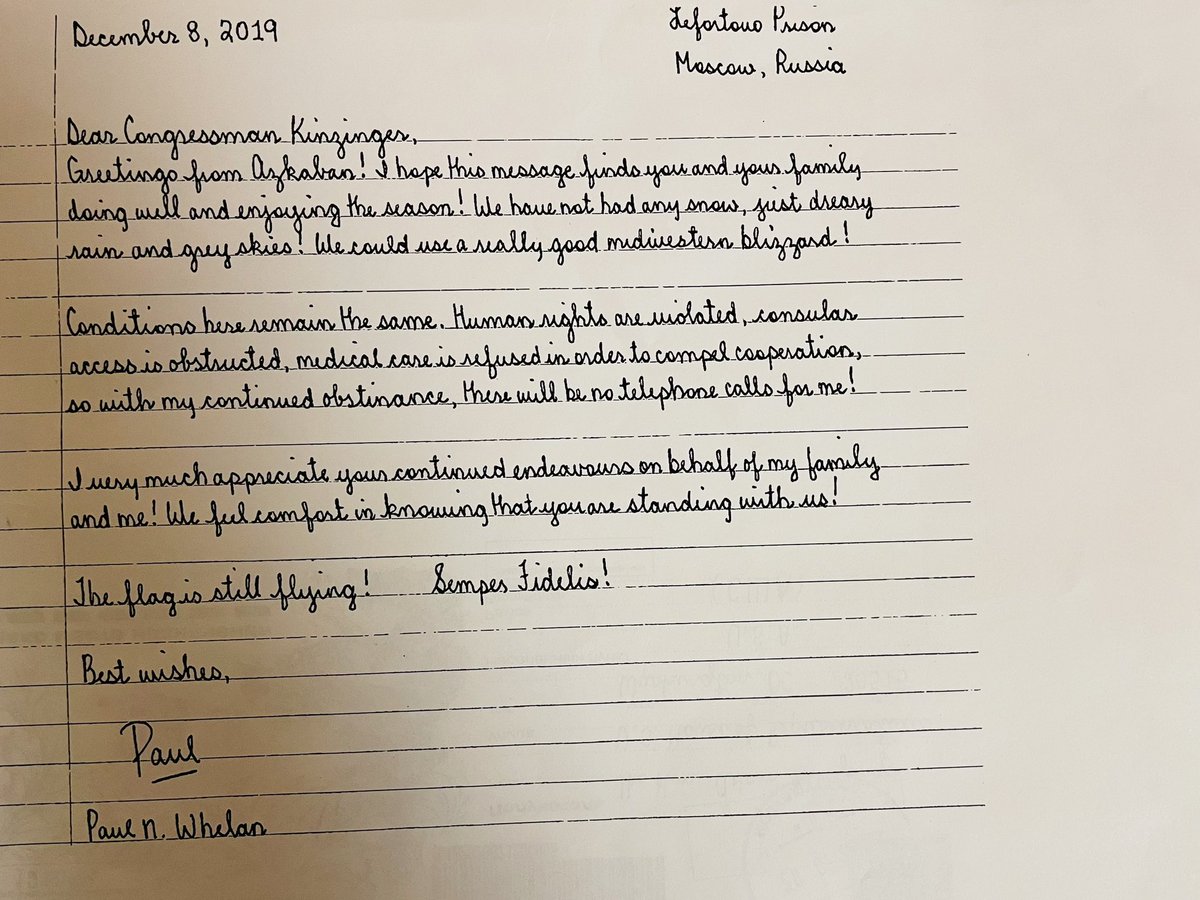 December 8, 2019
Lefortovo Prison
Moscow, Russia
Dear Congressman Kinzinger,
Greetings from Azkaban! I hope this message finds you and your family
doing well and enjoying the season! We have not had any snow, just dreary
rain and grey skies! We could use a really good midwestern blizzard!
Conditions here remain the same. Human rights are violated, consular
access is obstructed, medical care is refused in order to compel cooperation,
so with my continued obstinance, there will be no telephone calls for me!
I very much appreciate your continued endeavours on behalf of my family
and me! We feel comfort in knowing that you are standing with us!
The flag is still flying! Semper Fidelis!
Best wishes,
Paul
Paul N. Whelan